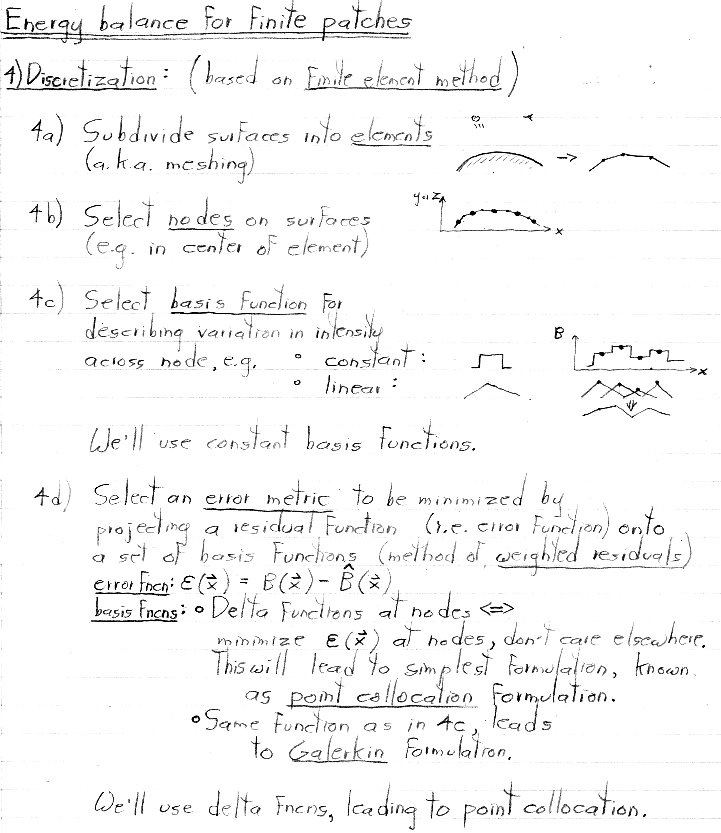 Energy balance for finite patches
4) Discretization: (based on finite element method)
4a) Subdivide surfaces into elements
(a.k.a. meshing)
4b) Select nodes on surfaces
(e.g. in center of element)
y or z
x
4c) Select basis function for
describing variation in intensity
across node, e.g. • constant:
• linear:
B
x
We'll use constant basis functions.
4d) Select an error metric to be minimized by
projecting a residual function (i.e. error function) onto
a set of basis functions (method of weighted residuals)
error fncn: ε(x⃗) = B(x⃗) - B̂(x⃗)
basis fncns: • Delta functions at nodes <=>
minimize ε(x⃗) at nodes, don't care elsewhere.
This will lead to simplest formulation, known
as point collocation formulation.
• Same function as in 4c, leads
to Galerkin formulation.
We'll use delta fncns, leading to point collocation.